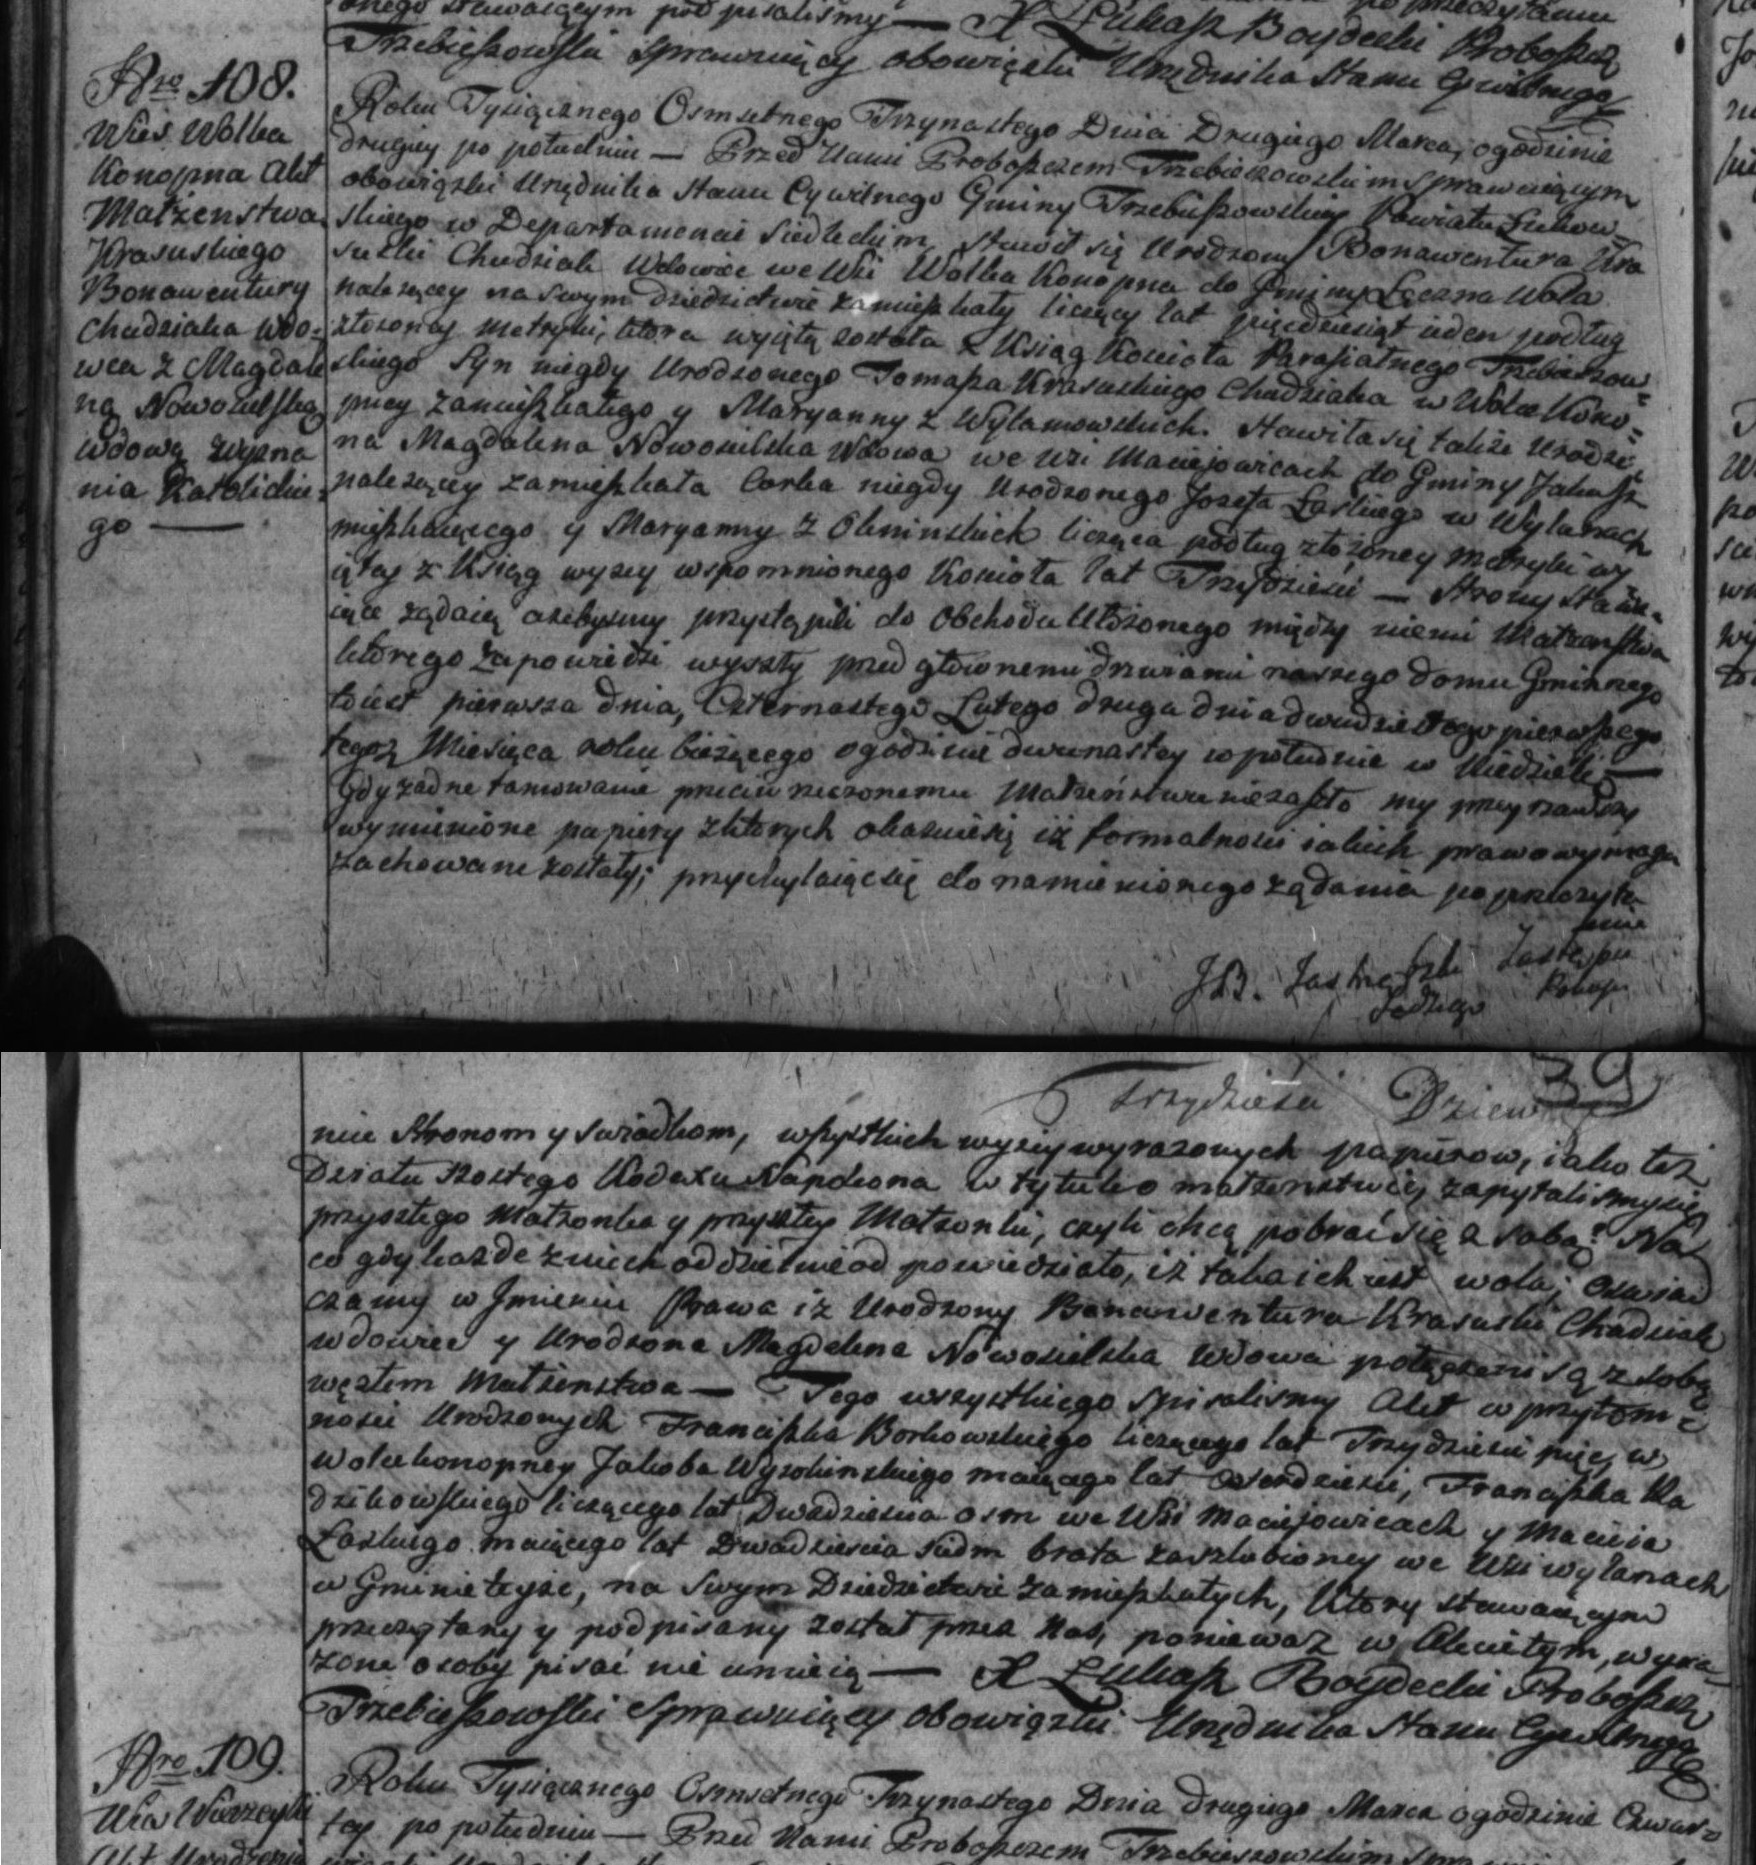 onego stawaiącym podpisaliśmy — X Łukasz Boydecki Proboszcz
Trzebieszowski sprawuiący obowiązki Urzędnika Stanu Cywilnego
Nro 108.
Wieś Wolka
Konopna Akt
Małżeństwa
Krasuskiego
Bonawentury
Chudziaka Wdo=
wca z Magdale
ną Nowosielską
wdową wyzna
nia Katolickie=
go —
Roku Tysiącznego Osmsetnego Trzynastego Dnia Drugiego Marca, ogodzinie
drugiey po południu — Przed Nami Proboszczem Trzebieszowskim sprawuiącym
obowiązki Urzędnika Stanu Cywilnego Gminy Trzebieszowskiey Powiatu Łukow=
skiego w Departamencie Siedleckim, stawił się Urodzony Bonawentura Kra
suski Chudziak Wdowiec we Wsi Wolka Konopna do Gminy Łęczna Wola
należącey na swym dziedzictwie zamieszkały liczący lat pięćdziesiąt ieden podług
złożoney metryki, ktora wyiętą została z Ksiąg Kościoła Parafialnego Trzebieszow=
skiego Syn niegdy Urodzonego Tomasza Krasuskiego Chudziaka w Wolce Kono=
pney zamieszkałego y Maryanny z Wylamowskich. Stawiła się także Urodzo=
na Magdalena Nowosielska Wdowa we wsi Maciejowicach do Gminy Jakusz
należącey zamieszkała Corka niegdy Urodzonego Jozefa Łaskiego w Wylanach
mieszkaiącego y Maryanny z Oleninskich licząca podług złożoney metryki wy
iętey z Ksiąg wyzey wspomnionego Kościoła lat Trzydzieści — Strony stawa=
iące żądaią ażebyśmy przystąpili do Obchodu Ułożonego między niemi Małżeństwa
ktorego zapowiedzi wyszły przed głownemi drzwiami naszego domu Gminnego
toiest pierwsza dnia, Czternastego Lutego druga dnia dwudziestego pierwszego
tegoz Miesiąca roku bieżącego ogodzinie dwunastey w południe w Niedziele —
Gdy żadne tamowanie przeciw rzeczonemu Małżeństwu niezaszło my przeyrzawszy
wymienione papiery z ktorych okazuiesię iż formalności iakich prawo wymaga
zachowane zostały; przychylaiąc się do namienionego żądania po przeczyta
niu
JB. Jastrzębski Zastępca
Sędziego Pokoju
Trzydzieści Dziewięć 39
niu Stronom y świadkom, wszystkich wyzey wyrazonych papierow, iako też
Działu szostego Kodexu Napoleona w tytule o małżenstwie, zapytaliśmy się
przyszłego Małzonka y przyszłey Małzonki, czyli chcą pobrać się z sobą? Na
co gdy każde z nich oddzielnie odpowiedziało, iż taka ich iest wola; Oswiad
czamy w Jmieniu Prawa iż Urodzony Bonawentura Krasuski Chudziak
wdowiec y Urodzona Magdalena Nowosielska Wdowa połączeni są z sobą
węzłem Małżenstwa — Tego wszystkiego spisaliśmy Akt w przytom=
ności Urodzonych Franciszka Borkowskiego liczącego lat Trzydzieści pięć w
Wolce konopney Jakoba Wysokinskiego maiącego lat Czterdzieści, Franciszka Ra
dzikowskiego liczącego lat Dwadzieścia osm we Wsi Maciejowicach y Macieia
Łaskiego maiącego lat Dwadzieścia siedm brata zaszlubioney we Wsi Wylanach
w Gminie teyże, na swym Dziedzictwie zamieszkałych, Ktory stawaiącym
przeczytany y podpisany został przez Nas, ponieważ w Akcie tym, wyra=
zone osoby pisać nie umieią — X Łukasz Boydecki Proboszcz
Trzebieszowski Sprawuiący obowiązki Urzędnika Stanu Cywilnego
Nro 109.
Akt Urodzenia
Roku Tysiącznego Osmsetnego Trzynastego Dnia drugiego Marca ogodzinie Czwar=
tey po południu — Przed Nami Proboszczem Trzebieszowskim